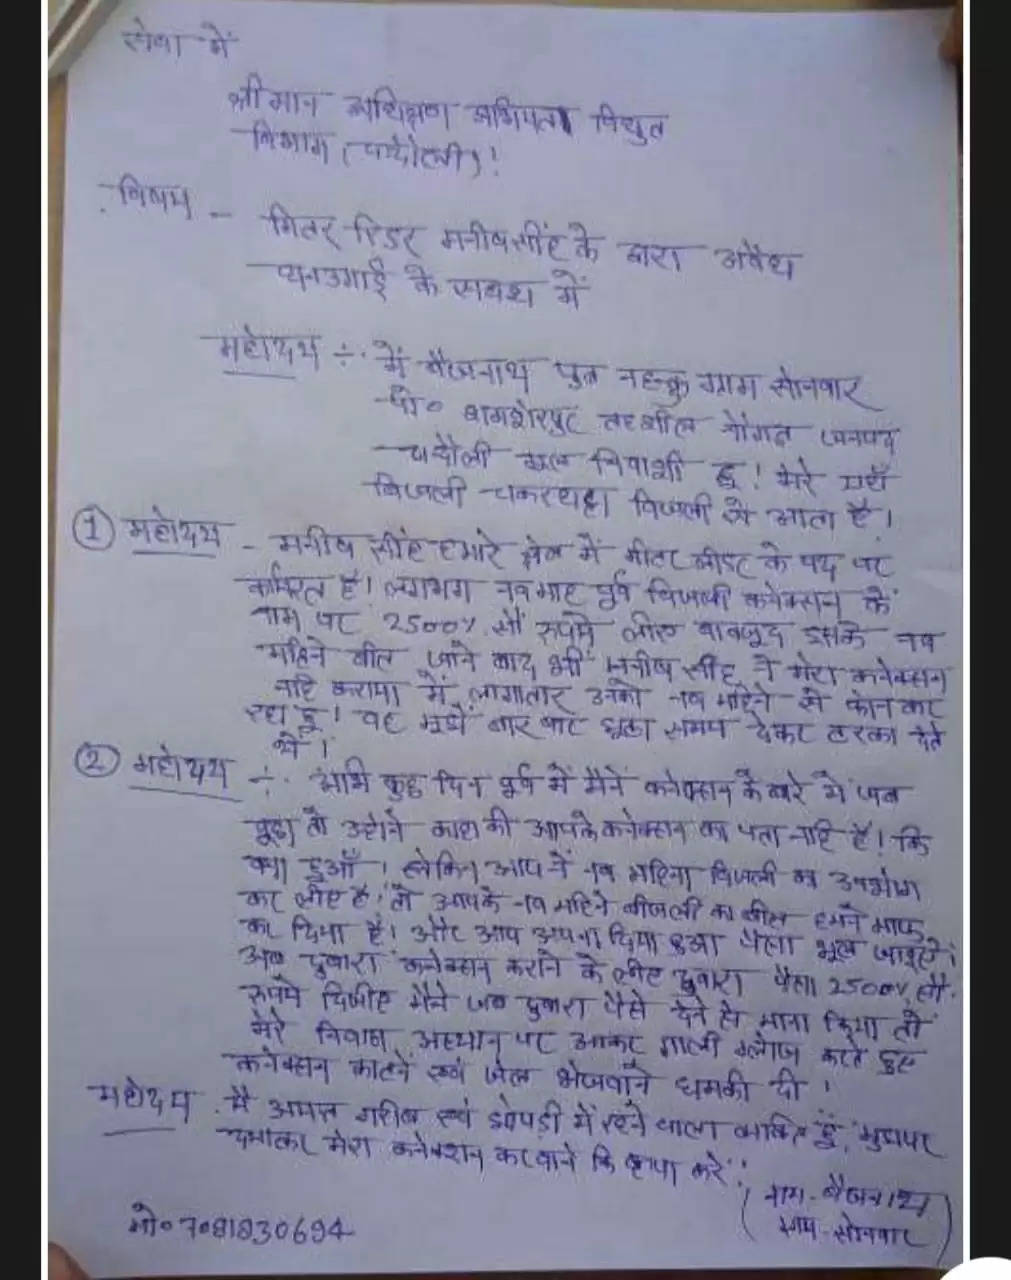 सेवा में
श्रीमान अधिक्षण अभियंता विधुत
विभाग (चन्दौली)!
विषय - मिटर रिडर मनीष सींह के द्वारा अवैध
धनउगाई के सबंध में
महोदय ÷ में बैजनाथ पुत्र नहकु ग्राम सोनवार
पो० शमशेरपुर तहशील नौगढ़ जनपद
चन्दौली मूल निवाशी हू! मेरे यहाँ
बिजली चकरघट्टा बिजली से आता है।
① महोदय - मनीष सींह हमारे क्षेत्र में मीटर रीडर के पद पर
कार्मरत है। लगभग नव माह पूर्व बिजली कनेक्सन के
नाम पर 2500% सौ रुपये लीए बावजूद इसके नव
महिने बीत जाने बाद भी मनीष सींह ने मेरा कनेक्सन
नहि कराया में लागातार उनको नव महिने से फोन कर
रहा हू। वह मुझे बार बार झूठा समय देकर टरका देते
थे।
② महोदय ÷ अभि कुछ दिन पूर्व में मैने कनेक्सन के बारे में जब
पूछा तो उहोने काहा की आपके कनेक्सन का पता नाहि है। कि
क्या हुआँ। लेकिन आप नें नव महिना बिजली का उपभोग
कर लीए है। तो आपके नव महिने बीजली का बील हमने माफ
कर दिया है। और आप अपना दिया हुआ पैसा भूल जाइए।
अब दुबारा कनेक्सन कराने के लीए दुबारा पैसा 2500% सौ
रुपये दिजीए मैने जब दुबारा पैसे देने से माना किया तो
मेरे निवास अस्थान पर आकर गाली ग्लोज करते हुए
कनेक्सन काटनें एवं जेल भेजवाने धमकी दी।
महोदय मै अत्यंत गरीब एवं झोपड़ी में रहने वाला व्यक्ति हूँ, मुझपर
दयाकर मेरा कनेक्शन करवाने कि कृपा करें!
(नाम - बैजनाथ
ग्राम - सोनवार)
मो० 7081830694